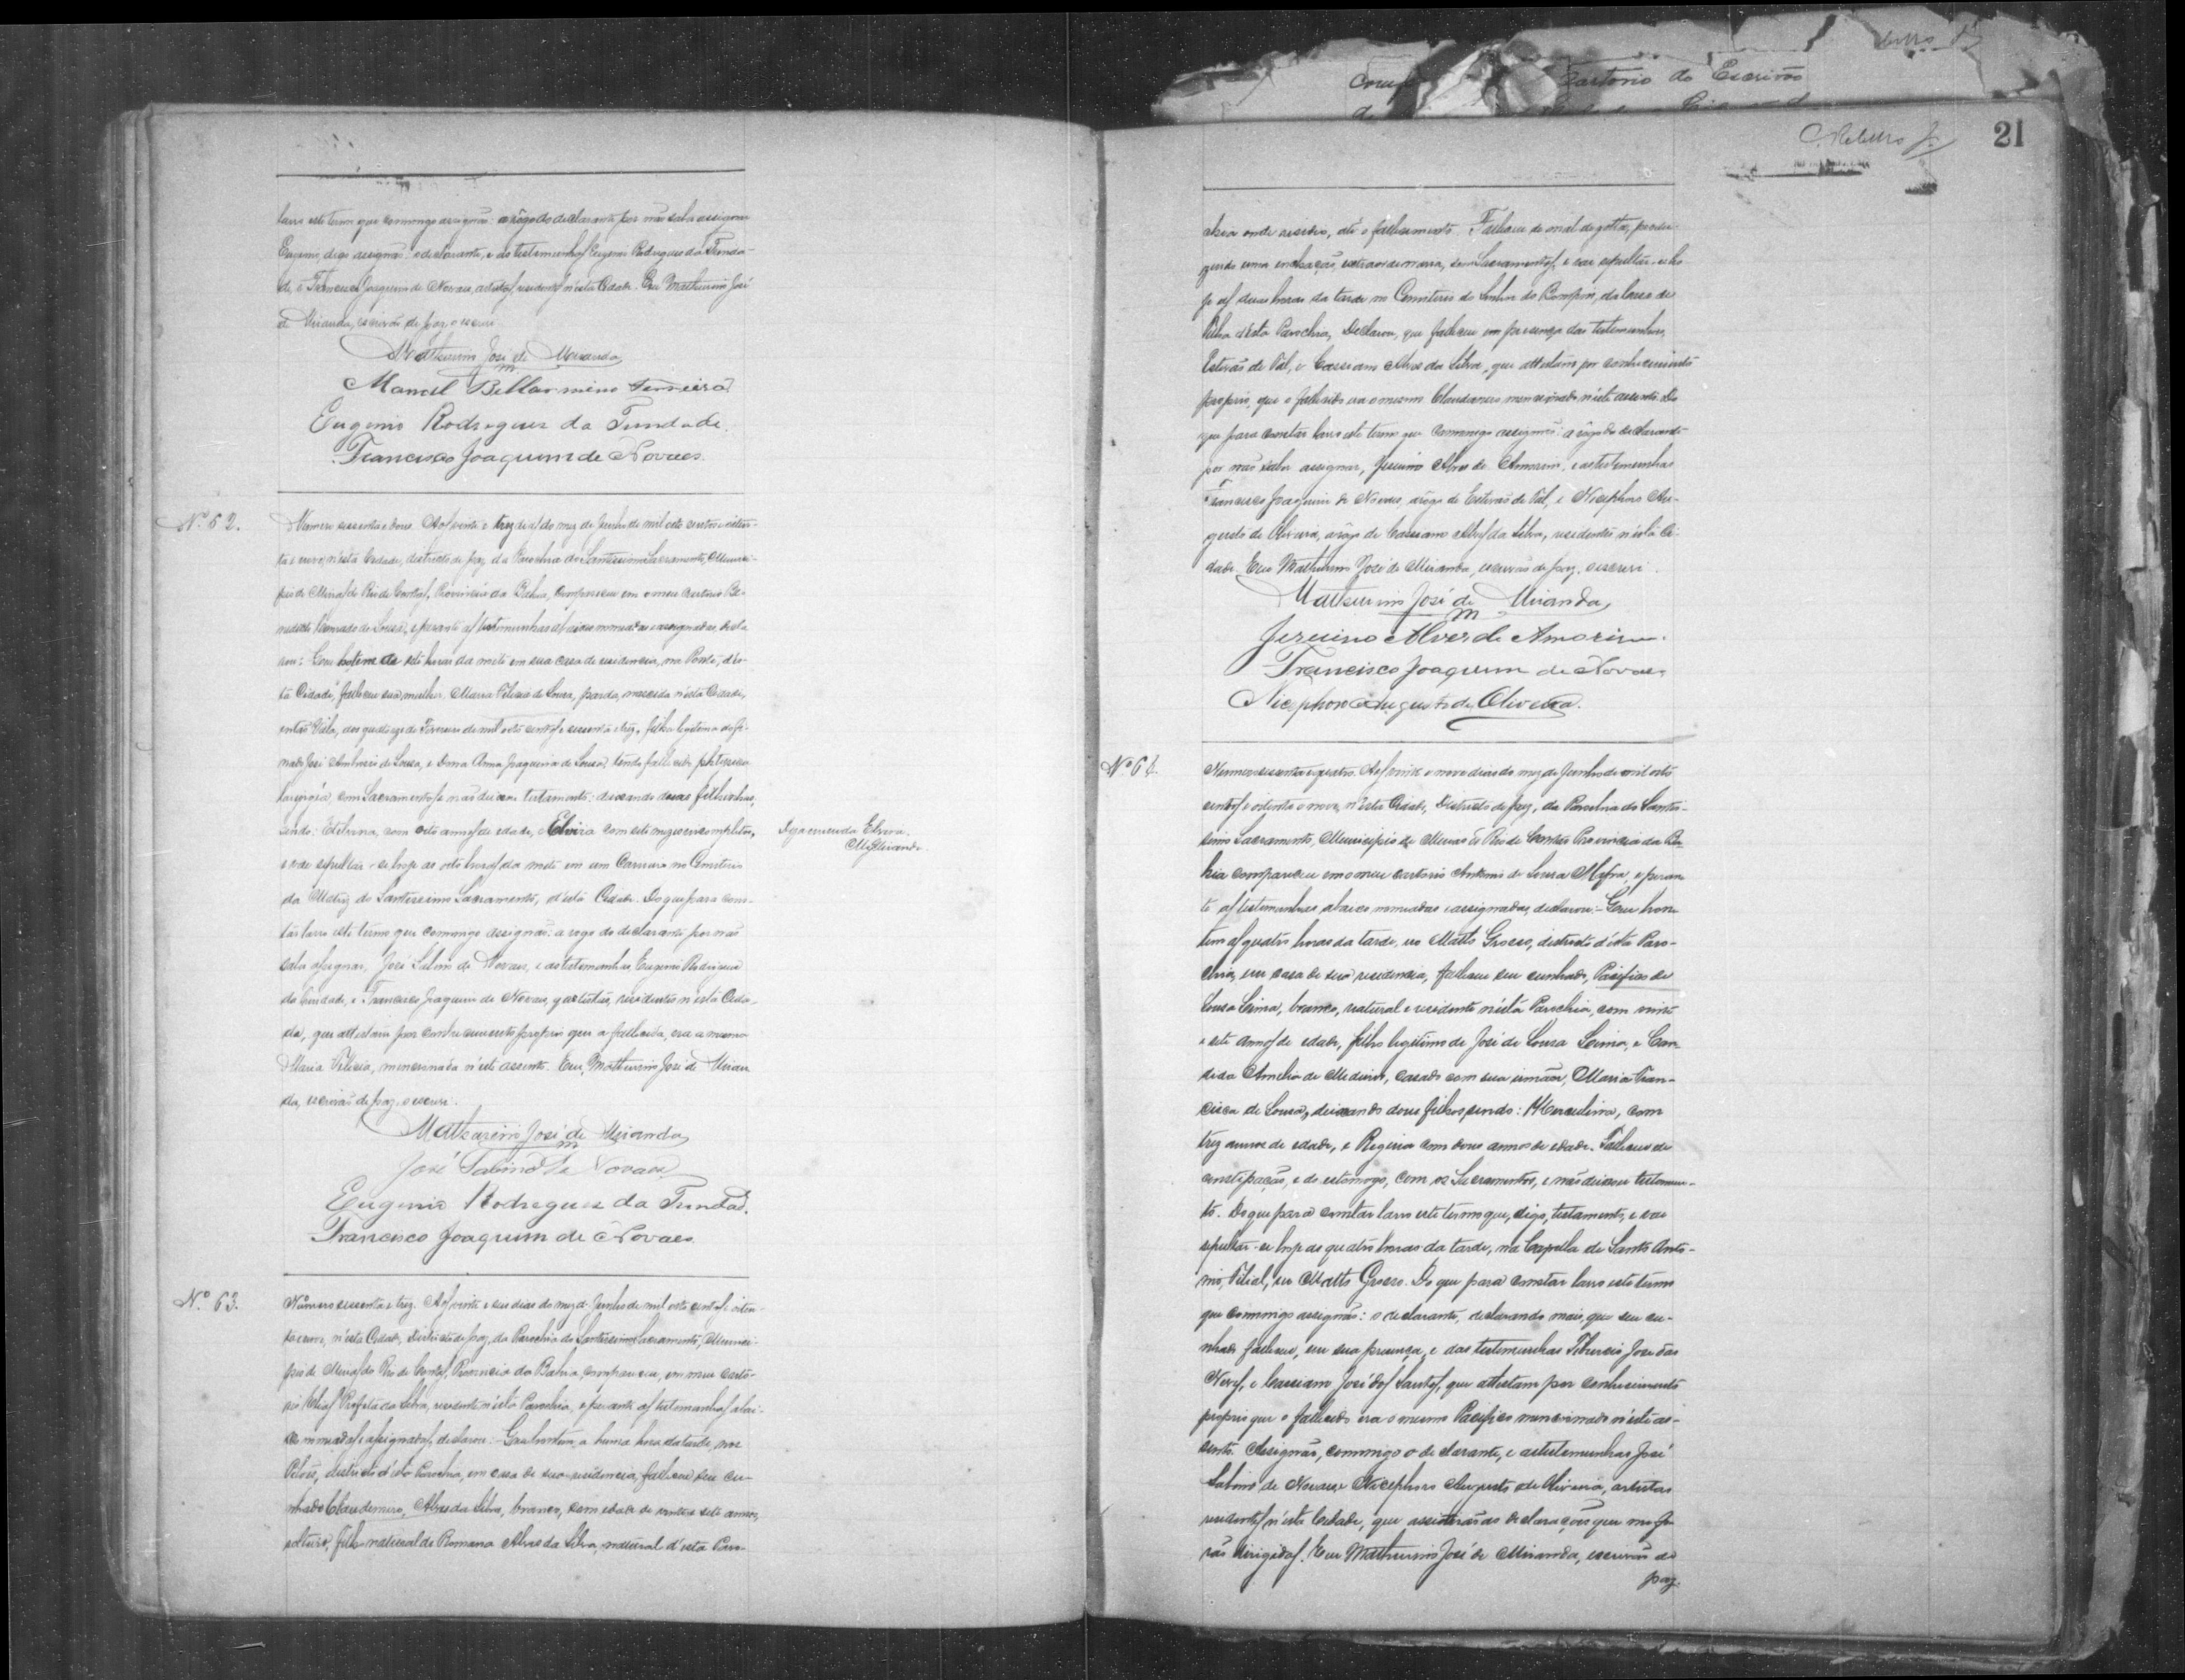 lavro este termo que commigo assignão: a rôgo do declarante por não saber assignar
Eugenio, digo assignão: o declarante, e as testemunhas Eugenio Rodrigues da Trinda-
de, e Francisco Joaquim de Novaes, artistas, residentes n'esta Cidade. Eu Mathurino José
de Miranda, escrivão de paz, o escrevi.
Mathurino José de Miranda,
Manoel Bellarmino Ferreira
Eugenio Rodrigues da Trindade.
Francisco Joaquim de Novaes.
Nº 62.
Numero sessenta e dous. Aos vinte e trez dias do mez de Junho de mil oito centos e oiten-
ta e nove, n'esta Cidade, districto de paz, da Parochia do Santissimo Sacramento, Munici-
pio de Minas do Rio de Contas, Provincia da Bahia, compareceu em o meu cartorio Be-
nedicto de Sousa, e perante as testemunhas abaixo nomeadas e assignadas, decla-
rou: Que hontem as sete horas da noite em sua casa de residencia, na Ponte, d'es-
ta Cidade, falleceu sua mulher Maria Felicia de Sousa, parda, nascida n'esta Cidade,
então Villa, aos quatorze de Fevereiro de mil oito centos e sessenta e trez, filha legitima do fi-
nado José Ambrosio de Sousa, e Dona Anna Joaquina de Sousa, tendo fallecido phtisica
laryngéa, com Sacramentos, e não deixou testamento: deixando duas filhinhas,
sendo: Etelvina, com oito annos de edade, Elvira com sete mezes incompletos,
e vae sepultar-se hoje as oito horas da noite em um Carneiro no Cemiterio
da Matriz do Santissimo Sacramento, d'esta Cidade. Do que para cons-
tar lavro este termo que commigo assignão: a rogo do declarante por não
saber assignar, José Sabino de Novaes, e as testemunhas Eugenio Rodrigues
da Trindade, e Francisco Joaquim de Novaes, artistas, residentes n'esta Cida-
de, que attestam por conhecimento proprio que a fallecida, era a mesma
Maria Felicia, mencionada n'este assento. Eu, Mathurino José de Miran-
da, escrivão de paz, o escrevi.
Digo emenda Elvira.
M. Miranda.
Mathurino José de Miranda,
José Sabino de Novaes
Eugenio Rodrigues da Trindade.
Francisco Joaquim de Novaes.
Nº 63.
Número sessenta e trez. Aos vinte e seis dias do mez de Junho de mil oito centos e oiten-
ta e nove, n'esta Cidade, Districto de paz, da Parochia do Santissimo Sacramento, Munici-
pio de Minas do Rio de Contas, Provincia da Bahia, compareceu, em meu carto-
rio Elias Profeta da Silva, residente n'esta Parochia, e perante as testemunhas abai-
xo nomeadas e assignadas, declarou: Que hontem, a huma hora da tarde, nos
districto d'esta Parochia, em casa de sua residencia, falleceu seu cu-
nhado Claudemiro, Alves da Silva, branco, com edade de vinte e sete annos,
solteiro, filho natural de Romana Alves da Silva, natural d'esta Paro-
C. Rebello Jr.
21
chia onde residio, até o fallecimento. Falleceu de mal de gotta, produ-
zindo uma inchação extraordinaria, sem Sacramentos, e vae sepultar-se ho-
je as duas horas da tarde no Cemiterio do Senhor do Bomfim, da
Velha d'esta Parochia, Declarou, que falleceu em presença das testemunhas,
Estevão de Tal, e Cassiano Alves da Silva, que attestam por conhecimento
proprio, que o fallecido era o mesmo Claudemiro mencionado n'este assento. Do
que para constar lavro este termo que commigo assignão: a rogo do declarante
por não saber assignar, Jesuino Alves de Amorim, e as testemunhas
Francisco Joaquim de Novaes, a rôgo de Estevão de Tal, e Nicephoro Au-
gusto de Oliveira, a rôgo de Cassiano Alves da Silva, residentes n'esta Ci-
dade. Eu Mathurino José de Miranda, escrivão de paz, o escrevi.
Mathurino José de Miranda,
Jesuino Alves de Amorim.
Francisco Joaquim de Novaes
Nicephoro Augusto de Oliveira.
Nº 64.
Numero sessenta e quatro. Aos vinte e nove dias do mez de Junho de mil oito
centos e oitenta e nove, n'esta Cidade, Districto de paz, da Parochia do Santis-
simo Sacramento, Municipio de Minas do Rio de Contas Provincia da Ba-
hia compareceu em o meu cartorio Antonio de Sousa Mafra, e peran-
te as testemunhas abaixo nomeadas e assignadas, declarou: Que hon-
tem as quatro horas da tarde, no Matto Grosso, districto d'esta Paro-
chia, em casa de sua residencia, falleceu seu cunhado, Pacifico de
Sousa Leima, branco, natural e residente n'esta Parochia, com vinte
e sete annos de edade, filho legitimo de José de Sousa Leima, e Can-
dida Amelia de Medeiros, casado com sua irmãa, Maria Fran-
cisca de Sousa, deixando dous filhos, sendo: Herculina, com
trez annos de edade, e Regina com dous annos de edade. Falleceu de
constipação, e do estomago, com os Sacramentos, e não deixou testamen-
to. Do que para constar lavro este termo que, digo, testamento, e vae
sepultar-se hoje as quatro horas da tarde, na Capella de Santo Anto-
nio, Filial, em Matto Grosso. Do que para constar lavro este termo
que commigo assignão: o declarante, declarando mais, que seu cu-
nhado falleceu, em sua presença, e das testemunhas Tiburcio José das
Neves, e Cassiano José dos Santos, que attestam por conhecimento
proprio que o fallecido era o mesmo Pacifico mencionado n'este as-
sento. Assignão, commigo o declarante, e as testemunhas José
Sabino de Novaes e Nicephoro Augusto de Oliveira, artistas
residentes n'esta Cidade, que assistirão as declarações que me fo-
rão dirigidas. Eu Mathurino José de Miranda, escrivão de
paz.